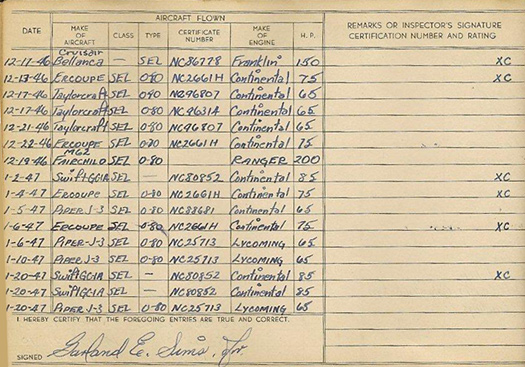 AIRCRAFT FLOWN
DATE MAKE OF AIRCRAFT CLASS TYPE CERTIFICATE NUMBER MAKE OF ENGINE H. P. REMARKS OR INSPECTOR'S SIGNATURE CERTIFICATION NUMBER AND RATING
Cruisair
12-17-46 Bellanca — SEL NC86778 Franklin 150 XC
12-13-46 ERCOUPE SEL 0-80 NC2661H Continental 75 XC
12-17-46 Taylorcraft SEL 0-80 N296807 Continental 65
12-17-46 Taylorcraft SEL 0-80 NC9631A Continental 65
12-21-46 Taylorcraft SEL 0-80 NC96807 Continental 65
12-22-46 ERCOUPE SEL 0-80 NC2661H Continental 75
M62
12-19-46 FAIRCHILD SEL 0-80 RANGER 200
1-2-47 Swift GC1A SEL — NC80852 Continental 85 XC
1-4-47 ERCOUPE SEL 0-80 NC2661H Continental 75 XC
1-5-47 PIPER J-3 SEL 0-80 NC88681 Continental 65
1-6-47 ERCOUPE SEL 0-80 NC2661H Continental 75 XC
1-6-47 PIPER-J-3 SEL 0-80 NC25713 LYCOMING 65
1-10-47 PIPER J-3 SEL 0-80 NC25713 LYCOMING 65
1-20-47 Swift GC1A SEL — NC80852 Continental 85 XC
1-20-47 Swift GC1A SEL — NC80852 Continental 85
1-20-47 PIPER J-3 SEL 0-80 NC25713 LYCOMING 65
I HEREBY CERTIFY THAT THE FOREGOING ENTRIES ARE TRUE AND CORRECT.
SIGNED Garland E. Sims, Jr